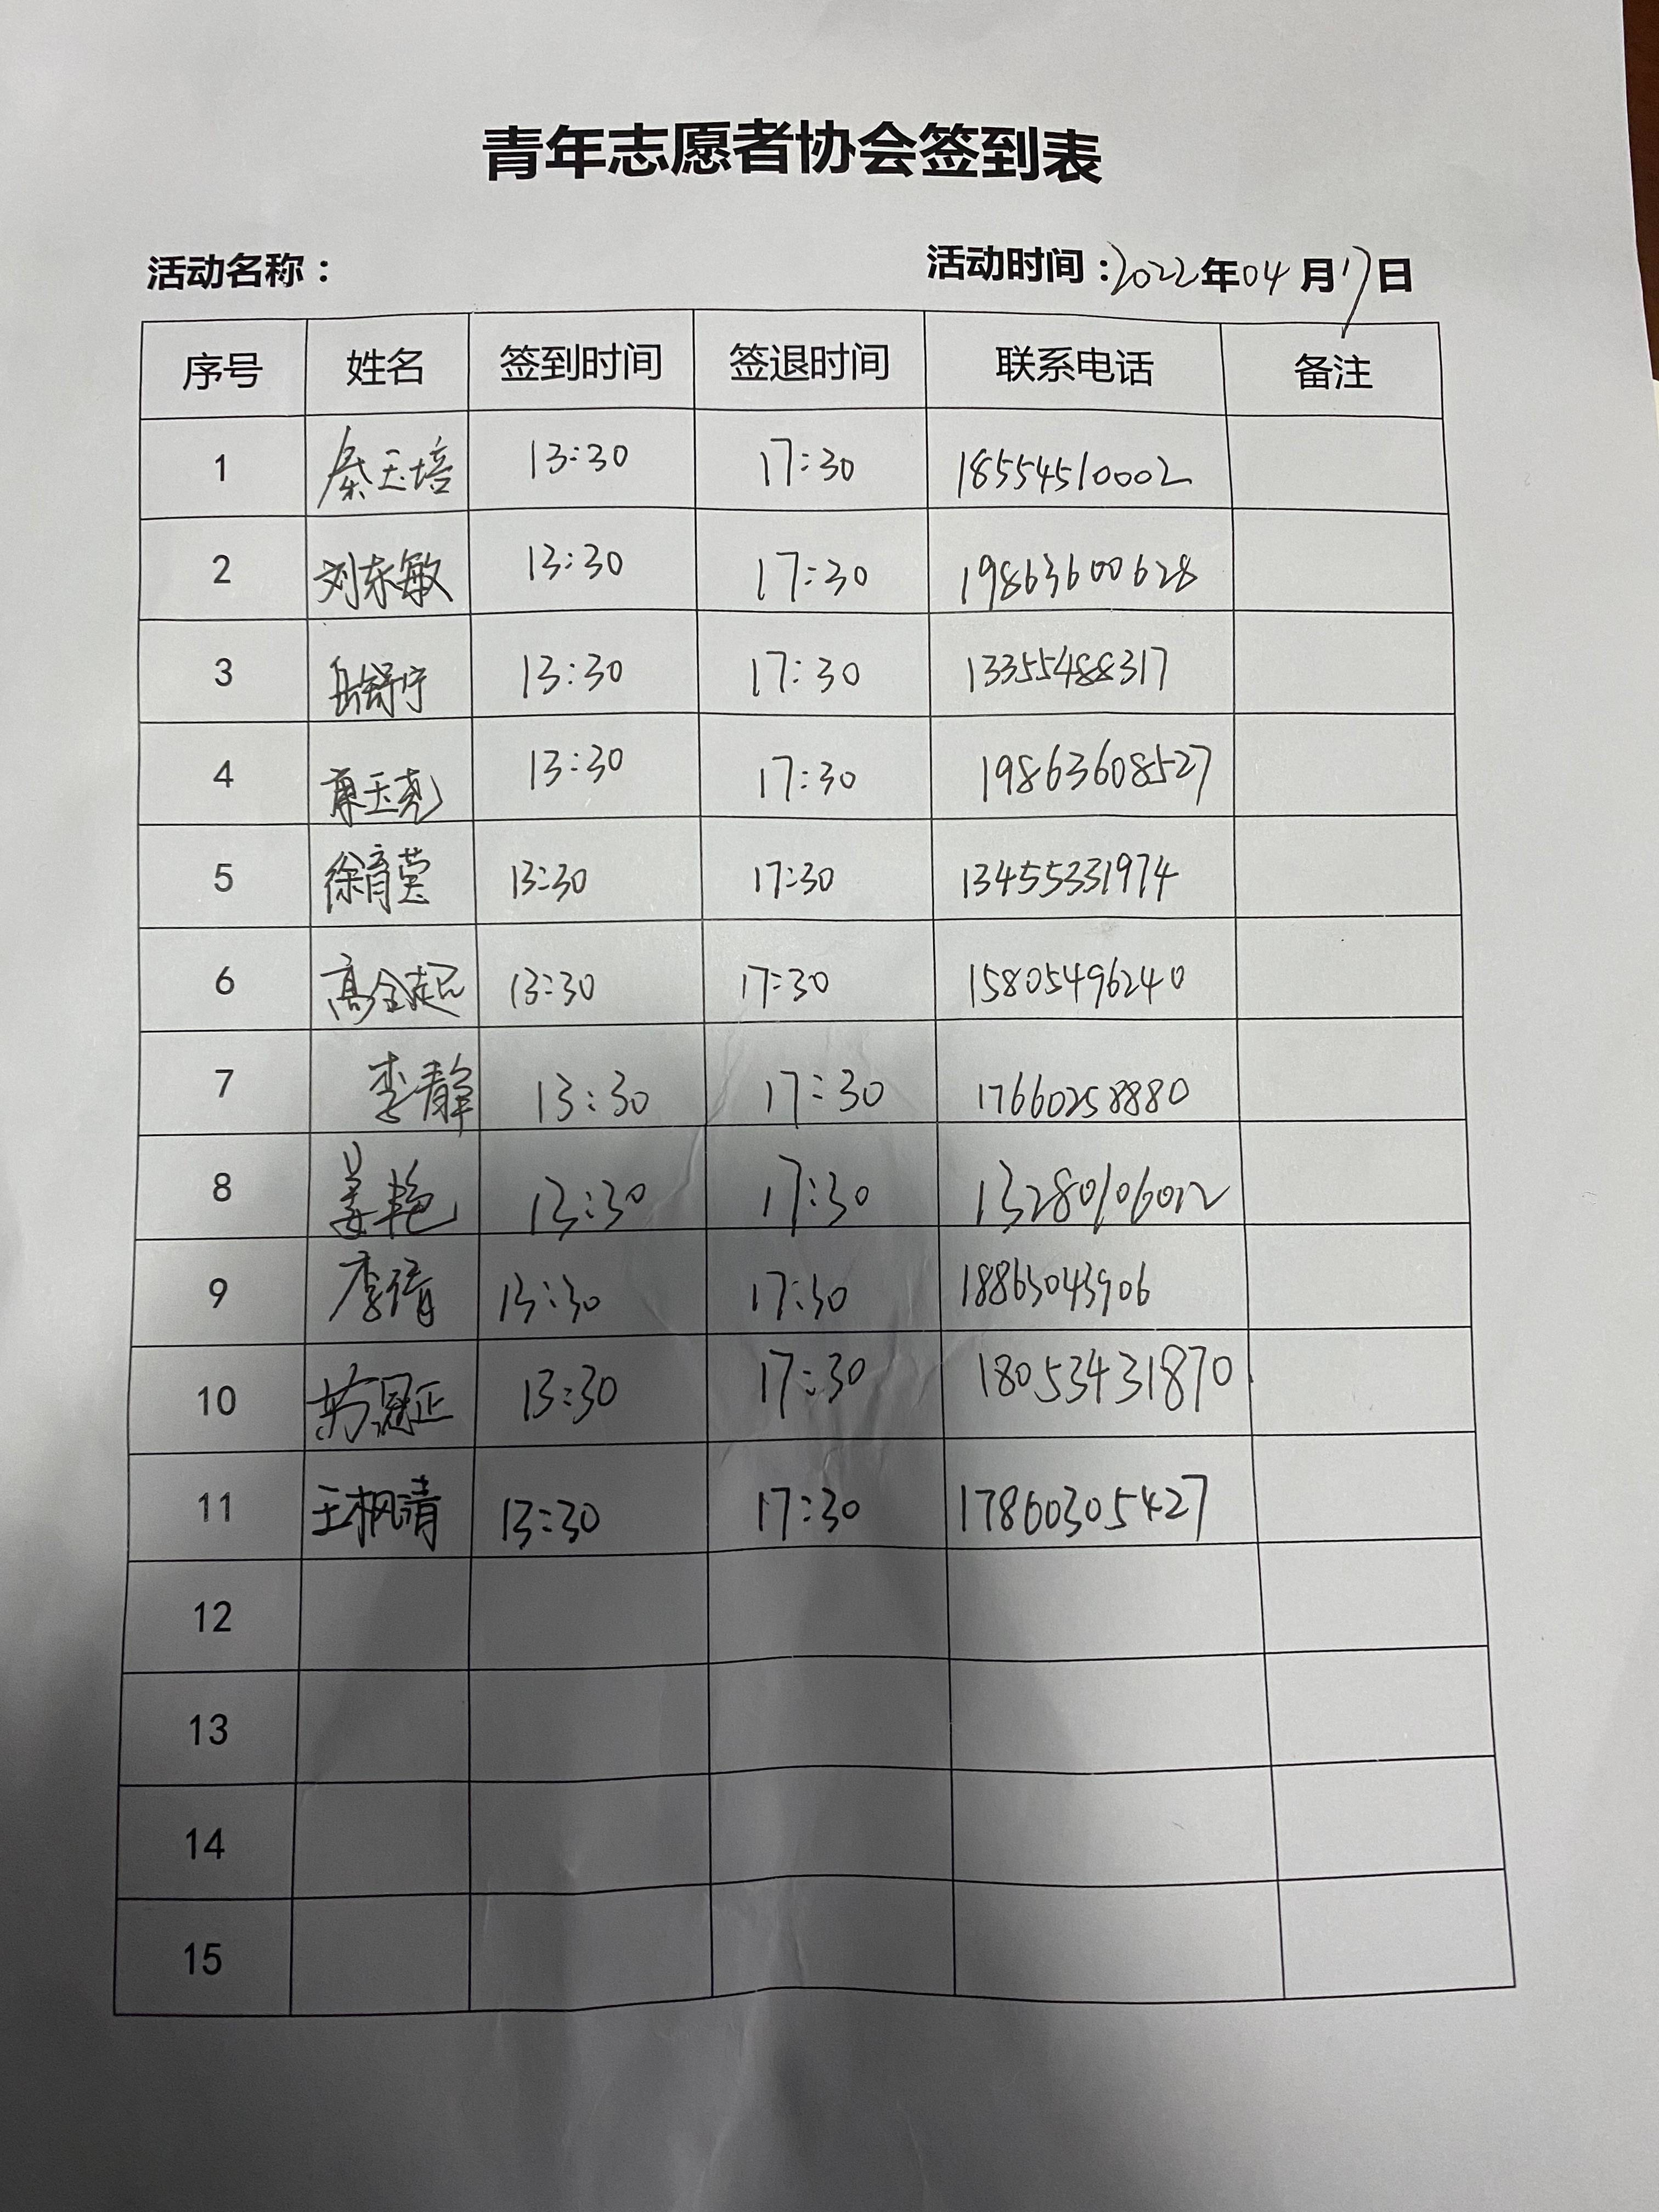 青年志愿者协会签到表
活动名称： 活动时间：2022年04月17日
序号 姓名 签到时间 签退时间 联系电话 备注
1 秦玉培 13:30 17:30 18554510002
2 刘东敏 13:30 17:30 19863600628
3 岳舒宁 13:30 17:30 13355488317
4 康玉尧 13:30 17:30 19863608527
5 徐育莹 13:30 17:30 13455331974
6 高全起 13:30 17:30 15805496240
7 李静 13:30 17:30 17660258880
8 姜艳 13:30 17:30 13280106012
9 李倩 13:30 17:30 18863043906
10 冠正 13:30 17:30 18053431870
11 王枫清 13:30 17:30 17860305427
12
13
14
15